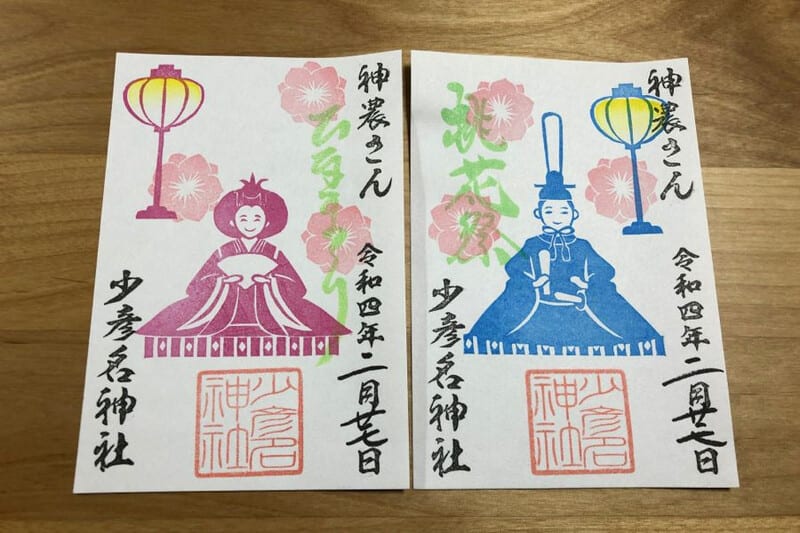 神農さん
令和四年二月廿七日
ひなまつり
少彦名神社
少彦名
神社
神農さん
令和四年二月廿七日
桃花祭
少彦名神社
少彦名
神社